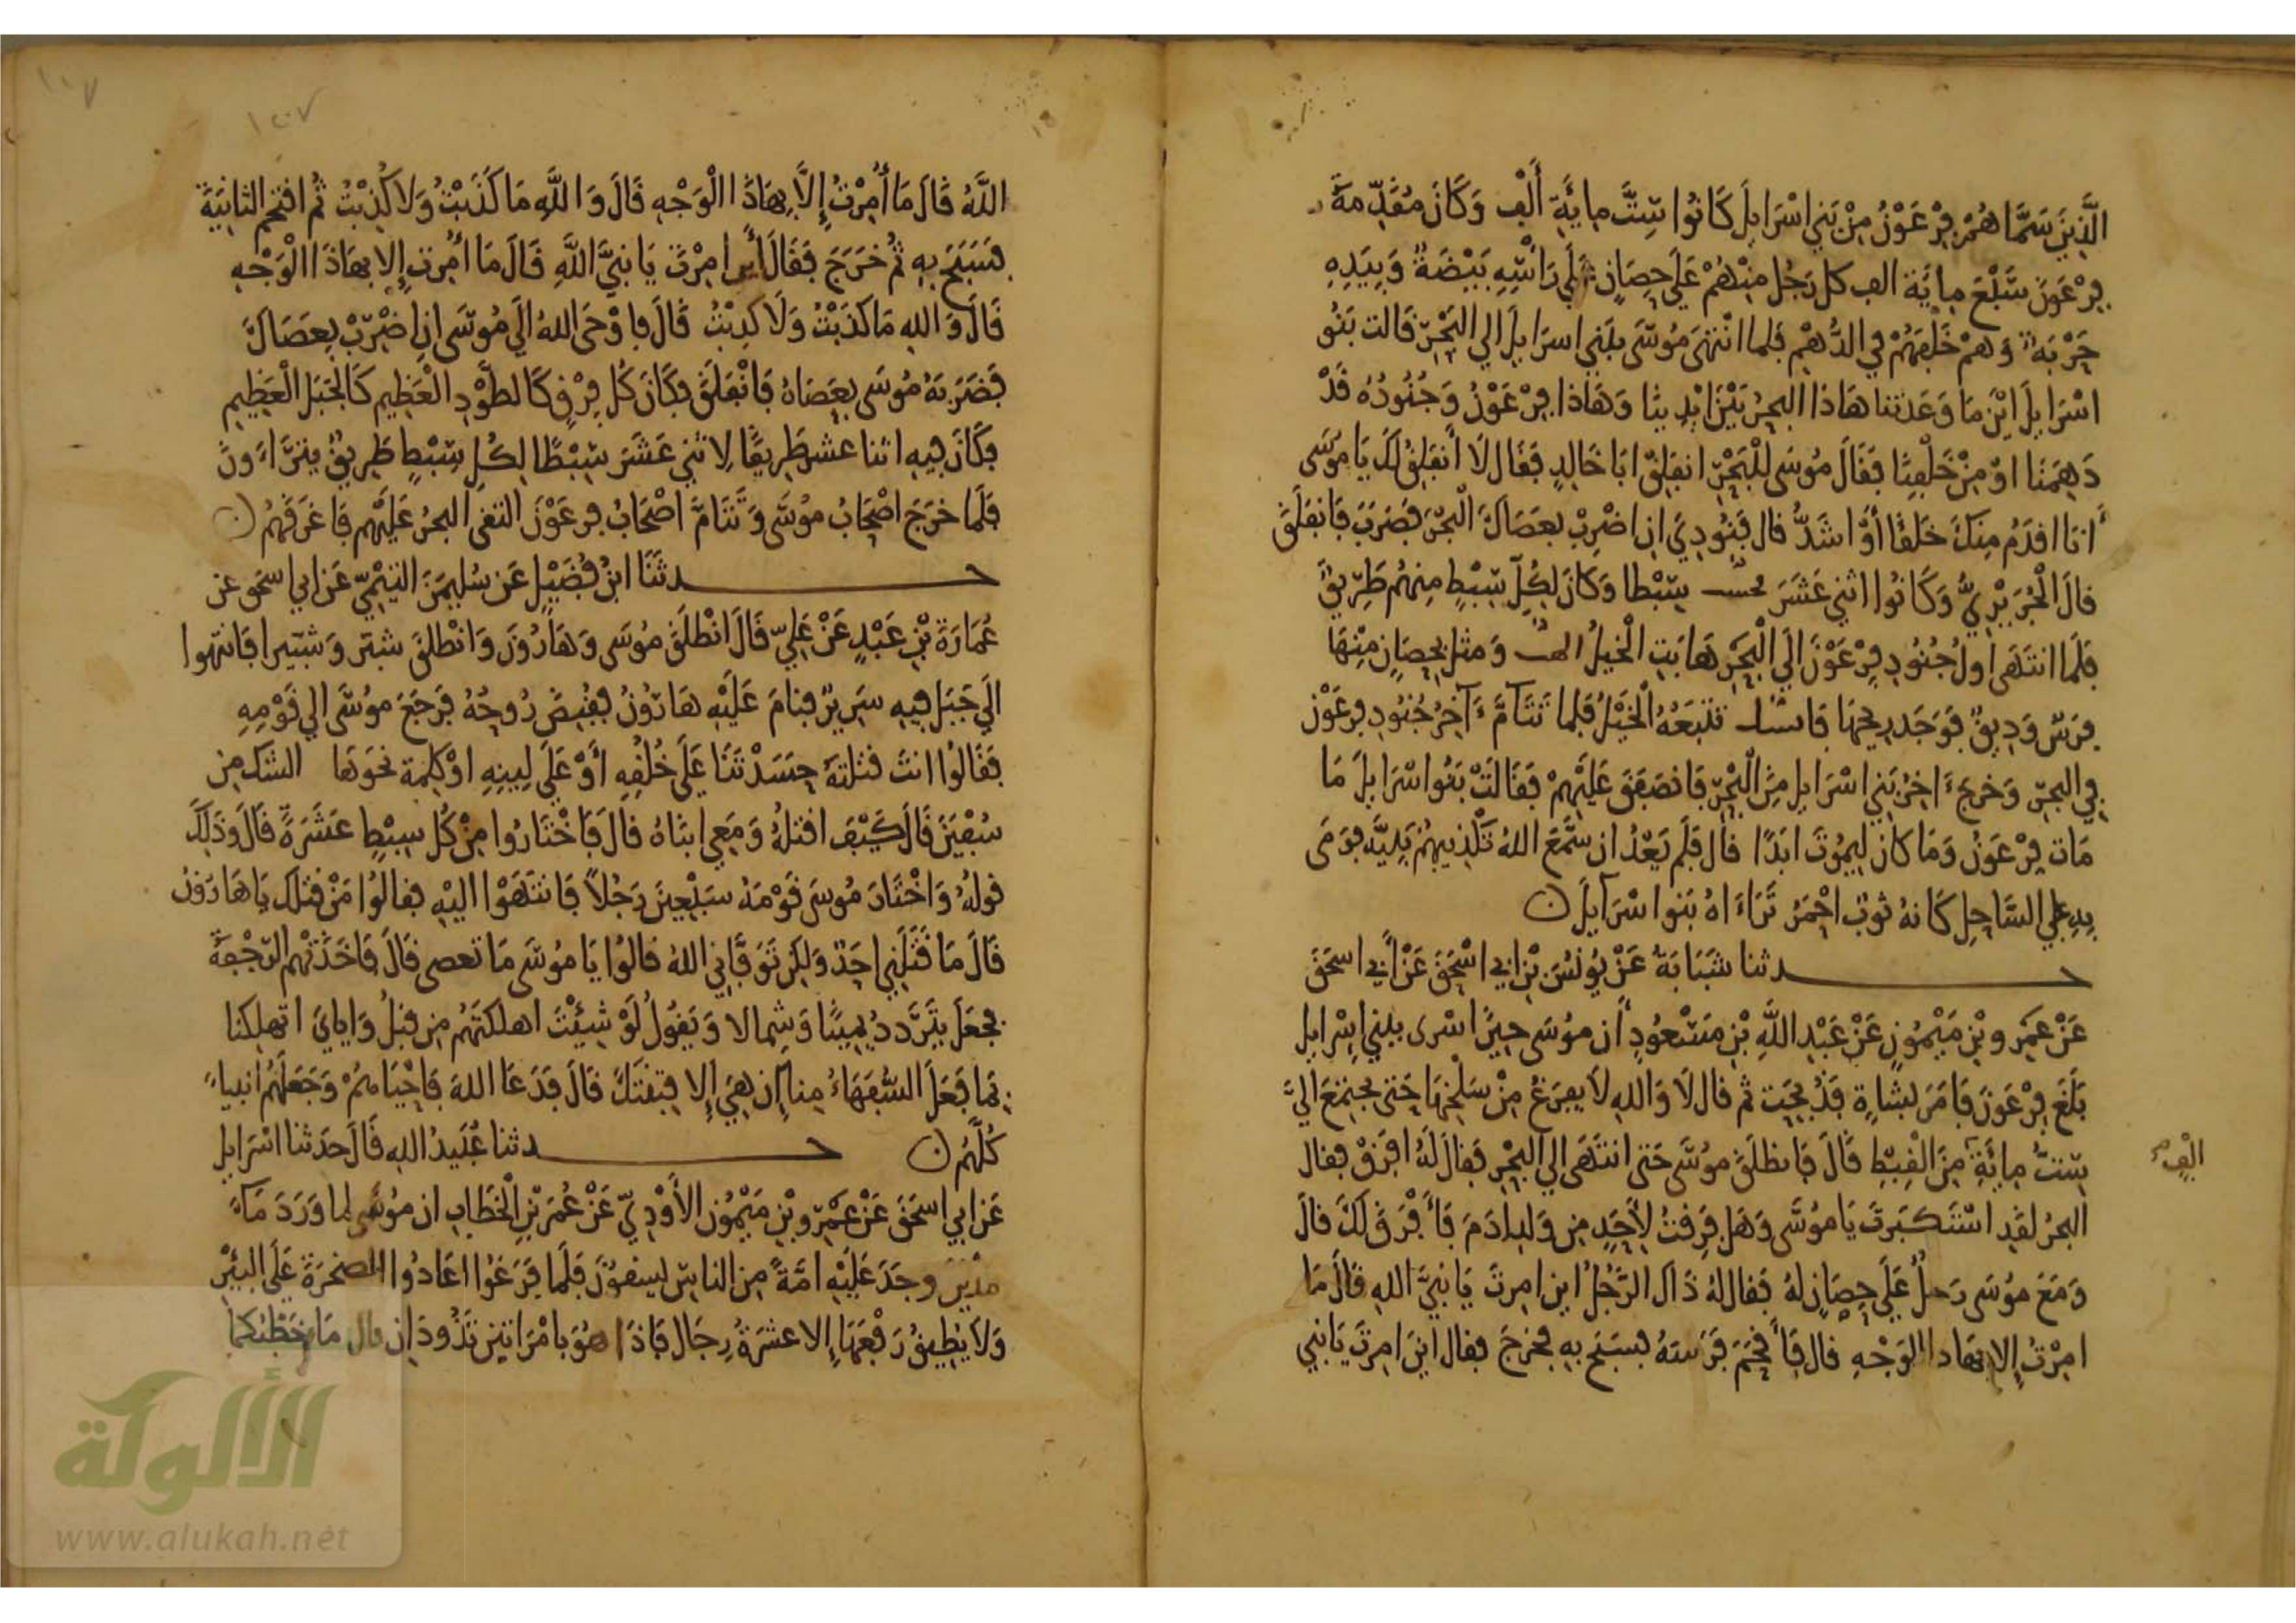 الَّذِينَ سَمَّاهُمْ فِرْعَوْنُ مِنْ بَنِي اسْرَايِلَ كَانُوا سِتَّ مِايَةِ أَلْفٍ وَكَانَ مُقَدِّمَةُ
فِرْعَوْنَ سَبْعَ مِايَة الف كل رَجُل مِنْهُمْ عَلَى حِصَانٍ عَلَى رَاسِهِ بَيْضَةٌ وَبِيَدِهِ
حَرْبَةٌ وَهُمْ خَلْفَهُمْ فِي الدُّهْمِ فَلَما انْتَهَى مُوسَى بِبَنِي اسرَايِلَ الي الْبَحْرِ قَالت بَنُو
اسْرَايِلَ ايْنَ مَا وَعَدتنا هَاذَا البحرُ بَيْنَ ايْدِينَا وَهَاذَا فِرْعَوْنُ وَجُنُودُهُ قَدْ
دَهِمَنا اوْ مِنْ خَلْفِنَا فَقَالَ مُوسَى لِلْبَحْرِ انفَلِقْ ابَا خَالِدٍ فَقَال لَا أَنفَلِقُ لَكَ يَا مُوسَى
أَنَا اقدَمُ مِنكَ خَلقًا أوْ اشَدُّ قال فَنُودِيَ انِ اضْرِبْ بِعَصَاكَ الْبَحْرَ فَضَرَبَ فَانفَلَقَ
قالَ الْجُرَيْرِيُّ وَكَانُوا اثْنِي عَشَرَ سِبْطا وَكَانَ لِكُلِّ سِبْطٍ مِنهُم طَرِيقٌ
فَلَمَّا انتَهَى اولُ جُنُودِ فِرْعَوْنَ الَى الْبَحْرِ هَابَتِ الْخَيلُ وَمثل بحِصَانٍ مِنْهَا
فرَسٌ وَدِيقٌ فَوَجَدَ رِيحَهَا تَتْبَعُهُ الْخَيْلُ فَلما تَتَآمَّ ءَآخِرُ جُنُودِ فِرعَوْنَ
فِي البحرِ وَخرجَ ءَاخِرُ بَنِي اسْرَايِل مِنَ الْبَحْرِ فَانصَفَقَ عَلَيْهِمْ فَقَالَتْ بَنُوا اسْرَايِلَ مَا
مَاتَ فِرْعَوْنُ وَمَا كان لِيمُوتَ ابَدًا قال فَلَم يَعْدُ ان سَمَّعَ اللهُ تَكْذِيبهُمْ نَبِيَّه فرَمَى
بِهِ علي السَّاحِلِ كَانهُ ثورٌ احْمَرُ تَرَاءَاهُ بَنوا اسْرَآيِلَ ن
حدثنا شَبَابَةُ عَنْ يُونُسَ بْنِ ابي اسْحَقَ عَنْ أَبي اسحَقَ
عَنْ عَمْرِو بْنِ مَيْمُونٍ عَنْ عَبْدِ اللَّهِ بْنِ مَسْعُودٍ أن موُسَى حِينَ اسْرى ببني اسْرايل
بَلَغَ فِرْعَوْنَ فَامَرَ بشَاةٍ فَذُبحَت ثم قال لَا وَاللهِ لَا يفرغُ مِنْ سَلْخِهَا حَتى يجتمعَ الَيَّ
سِتُّ مِايَةِ مِنَ الْقِبْطِ قَالَ فَانطَلَقَ موسَى حَتى انتَهَى الي الْبَحْرِ فَقَالَ لهُ افْرَقْ فقال
الْفٍ
البحرُ لقَدِ اسْتَكبَرتَ يَا موُسَى وَهَل فرَقتُ لِأَحَدٍ مِن وَلدِ ادَمَ فَأَفْرَقَ لكَ قالَ
وَمَعَ موُسَى رَجلٌ عَلَى حِصَانٍ لهُ فَقال لهُ ذَاكَ الرَّجُلُ اين امِرتَ يَا نَبِيَّ اللهِ قَالَ مَا
امِرْتُ إِلا بهَاذا الْوَجْهِ قال فَأَقْحَمَ فَرَسَهُ فسَبَحَ بهِ فخرَجَ فقال اينَ امِرتَ يَا نَبِي
١٠٧
١٠٧
اللَّهِ قَالَ مَا أُمِرْتُ إِلَّا بِهَاذَا الْوَجْهِ قَالَ وَاللَّهِ مَا كَذَبْتُ وَلَا كُذِبْتُ ثُم اقتَحَمَ الثانِيَةَ
فَسَبَحَ بِهِ ثُمَّ خَرَجَ فَقَالَ أين امِرْتَ يَا نَبِيَّ اللَّهِ قَالَ مَا أُمِرْتُ إِلا بهَاذَا الْوَجْهِ
قَالَ وَاللهِ مَا كذَبْتُ وَلَا كُذِبْتُ قَالَ فاوْحَى اللهُ الَى مُوسَى انِ اضْرِبْ بِعَصَاكَ
فَضَرَبَهُ مُوسَى بِعَصَاهُ فَانْفَلَقَ فكَانَ كُل فِرْقٍ كَالطَّوْدِ الْعَظِيمِ كَالْجَبَلِ الْعَظِيمِ
فكَانَ فِيهِ اثنا عشر طَرِيقًا لِاثني عَشَرَ سِبْطًا لِكُلِ سِبْطٍ طَرِيقٌ يَترَّاءَونَ
فَلَمَّا خرَجَ اصْحَابُ موُسَى وَتَتَامَّ اصْحَابُ فِرعَوْنَ التقَى البحرُ عَلَيْهِم فاغرَقَهُم ن
حدثَنَا ابنُ فُضَيْلٍ عَن سُلَيمَنَ التَّيْمِيِّ عَن ابي اسحَقَ عن
عُمَارَةَ بْنِ عَبْدٍ عَنْ عَلِيٍّ قَالَ انْطَلَقَ مُوسَى وَهَارُونَ وَانْطلقَ شبَّر وَشبّيرا فَانتهوا
الَى جَبَلٍ فِيهِ سَرِيرٌ فنامَ عَلَيْهِ هَارُونُ فقُبِضَ رُوحُهُ فرَجَعَ موُسَى الي قَوْمِهِ
فَقَالوُا انتَ قتلتَهُ حَسَدْتَنَا عَلَى خُلُقِهِ أَوْ عَلَى لِينِهِ اوْ كلِمة نحوَهَا الشك مِن
سُفْيَنَ قَالَ كَيْفَ اقتلُهُ وَمَعِي ابناهُ قالَ فَاخْتَارُوا مِنْ كُل سِبْطٍ عَشَرَةً قَالَ وَذَلِكَ
قولُهُ وَاخْتَارَ مُوسَى قَوْمَهُ سَبْعِينَ رَجُلاً فَانتَهَوْا اليْهِ فقالُوا مَنْ قتلَكَ يَا هَارُون
قَالَ مَا قَتَلَنِي احَدٌ وَلكِن تَوَفَّانِي اللهُ قالوُا يَا موُسَى مَا تعصى قالَ فَاخَذَتْهُم الرَّجْفَةُ
فجعَلَ يَتَرَدَّدُ يَمِينًا وَشِمالا وَيَقولُ لَوْ شِيْتَ اهلكتَهُم مِن قبلُ وَايايَ اتهلكنا
بِمَا فَعَلَ السُّفَهَاءُ مِنا إن هِيَ إِلا فِتْنَتُكَ قَالَ فَدَعَا اللهَ فَاحْيَاهُمْ وَجَعَلَهُمُ انبياءً
كُلَّهُمْ ن حدثنا عُبَيدُ اللهِ قَالَ حدَثنا اسْرَايل
عَن ابي اسحَقَ عَنْ عَمْرِو بْنِ مَيْمُونٍ الأَوْدِيِّ عَنْ عُمَرَ بْنِ الْخَطَابِ ان مُوسَى لما وَرَدَ مَاءَ
مَدْيَنَ وجَدَ عَلَيْهِ امَّةً مِن الناسِ يسقوُنَ فَلَمَّا فَرَغوُا اعَادُوا الصخرَةَ عَلَى البئرِ
وَلَا يُطِيقُ رَفْعَهَا إِلا عشَرَةُ رِجَال فَاذَا هُوَ بِامْرَاتَيْنِ تَذُودَانِ قال مَا خَطْبُكما
الألوكة
www.alukah.net